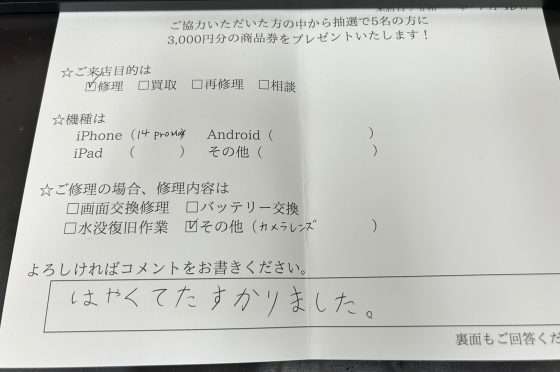 ご協力いただいた方の中から抽選で5名の方に
3,000円分の商品券をプレゼントいたします！
☆ご来店目的は
☑修理 □買取 □再修理 □相談
☆機種は
iPhone（14 promax） Android（ ）
iPad （ ） その他（ ）
☆ご修理の場合、修理内容は
□画面交換修理 □バッテリー交換
□水没復旧作業 ☑その他（カメラレンズ ）
よろしければコメントをお書きください。
はやくてたすかりました。
裏面もご回答くだ